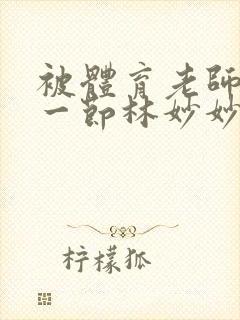 被體育老師
一節林妙妙
柠檬狐